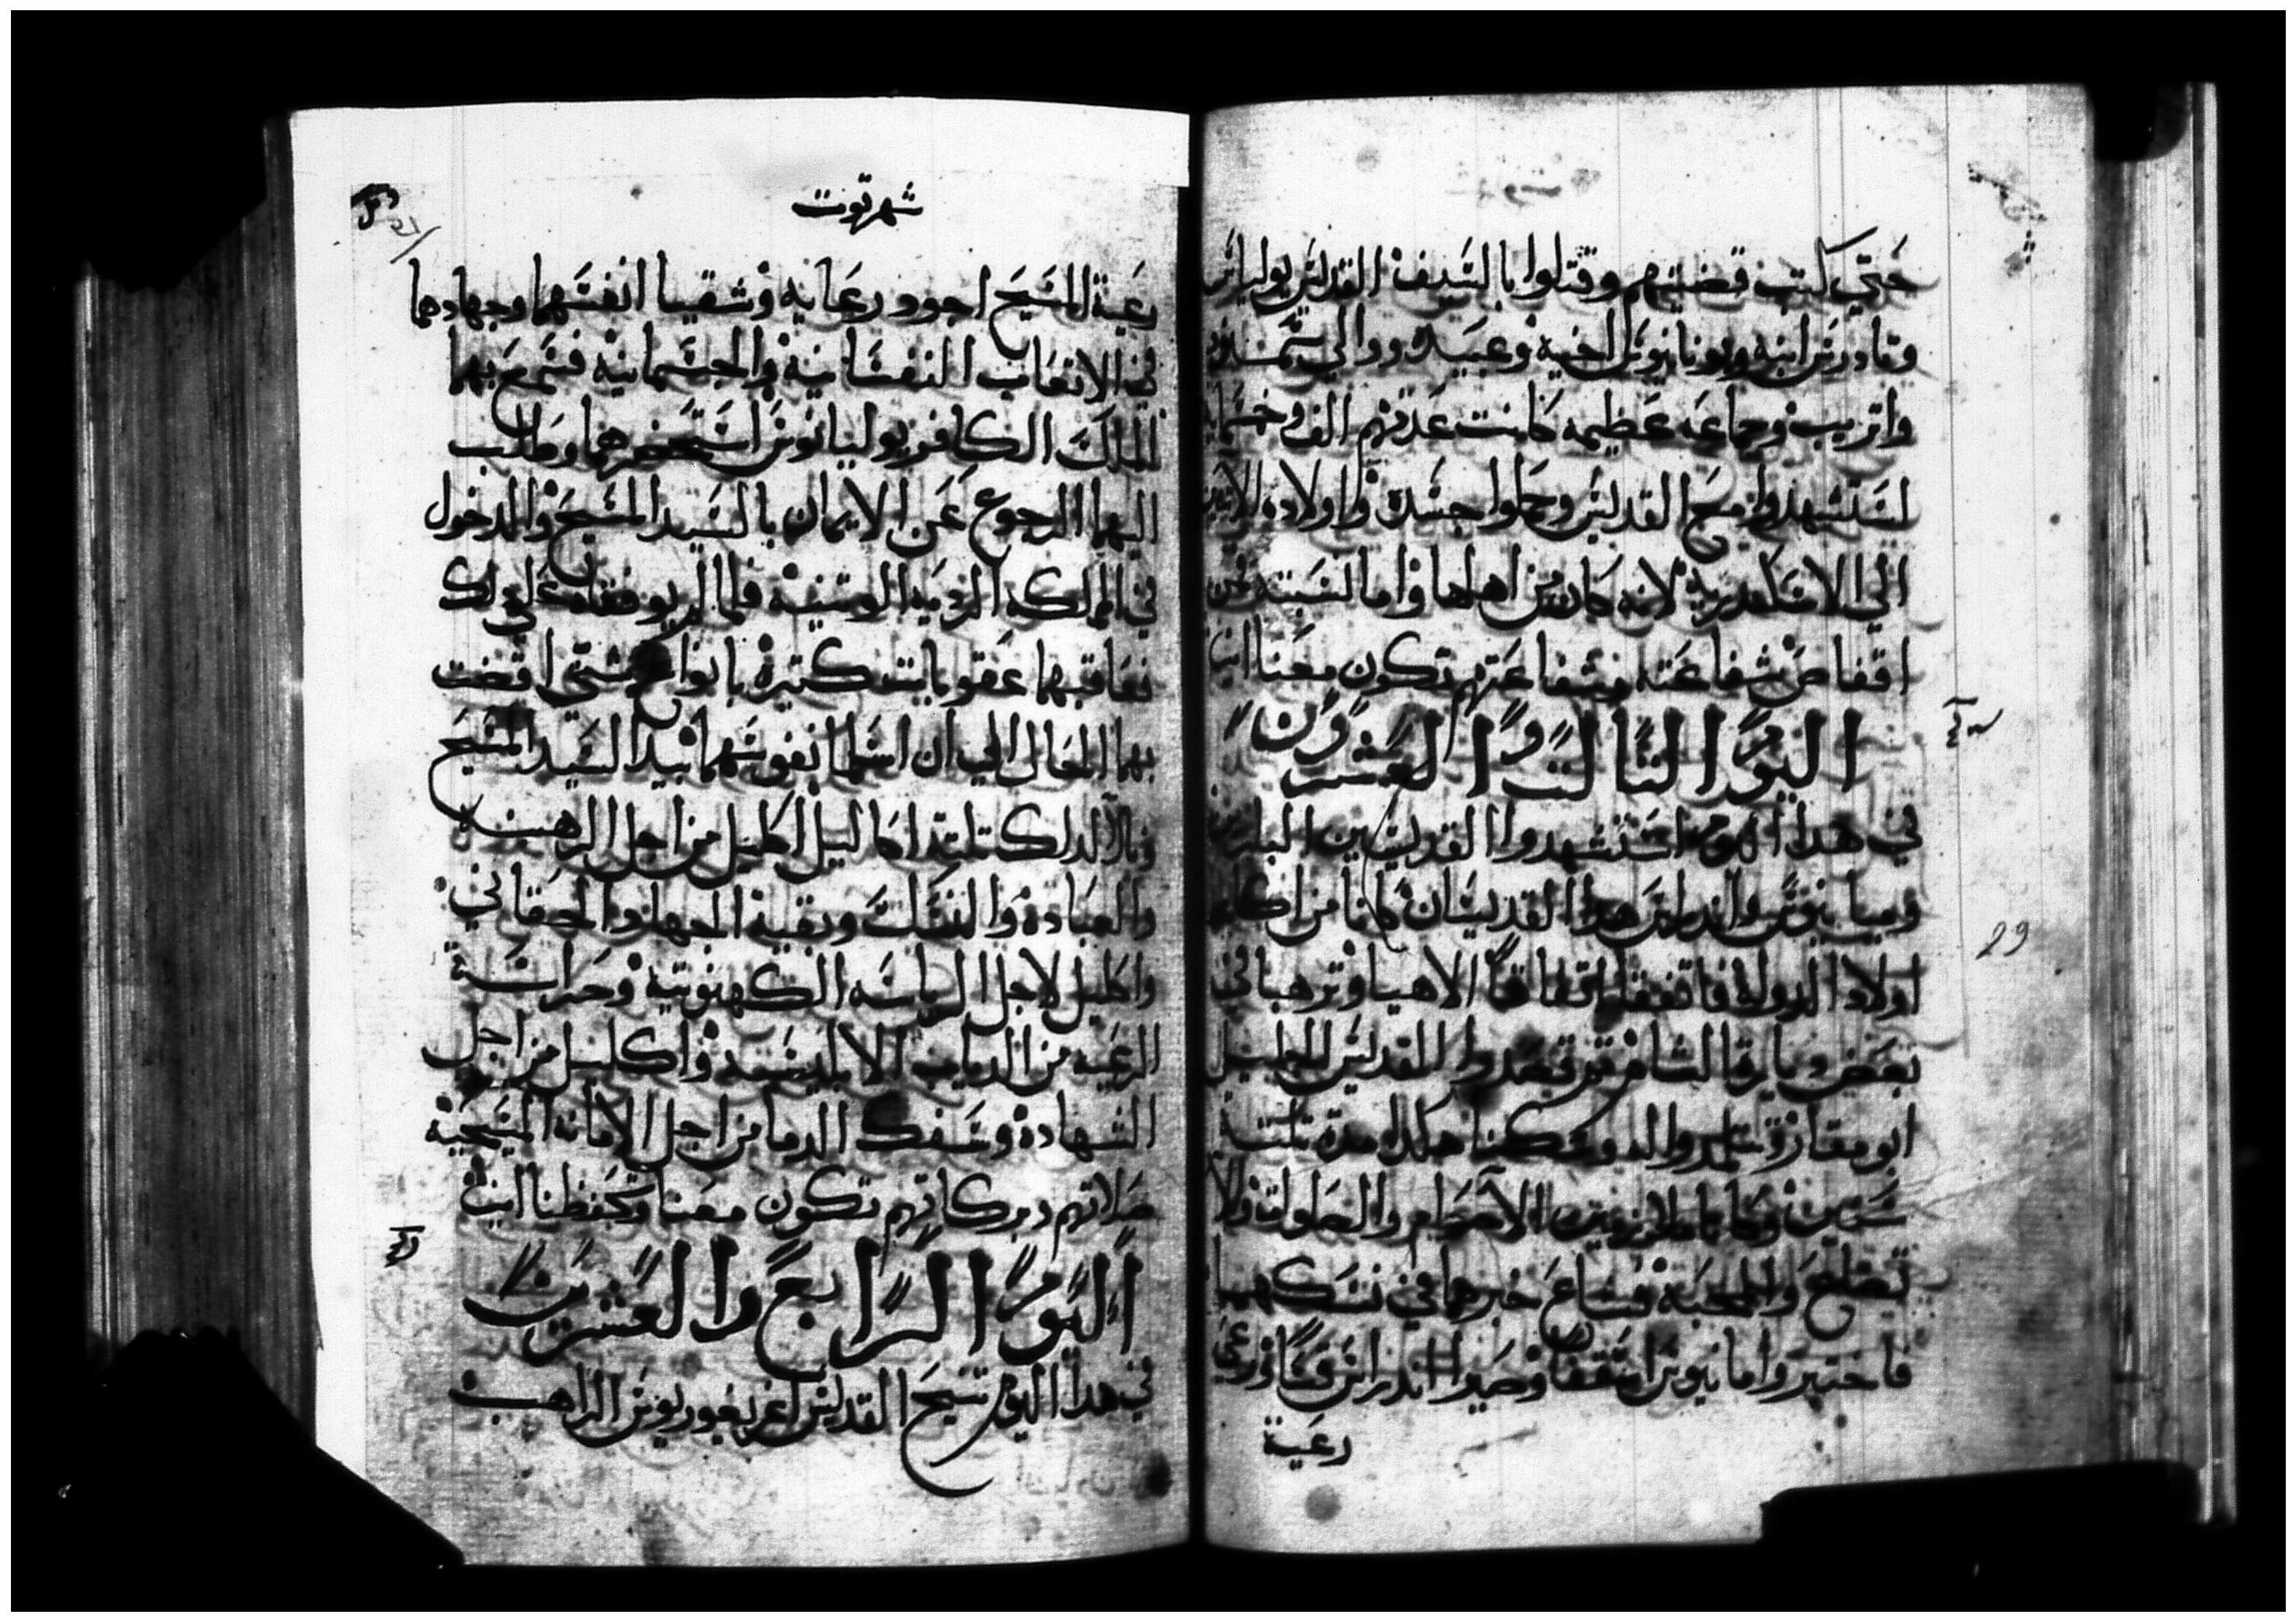 حتي كملت قضيتهم وقتلوا بالسيف القديس يوليانس
وتادرس ابنه ويونيانيوس اخيه وعبيده ووالي سمنود
واتريب وجماعه عظيمه كانت عدتهم الف وخمسمايه
استشهدوا مع القديس وحملوا جسده واولاده
الي الاسكندريه لانه كان من اهلها واما
اقفاص شفاعته وشفاعتهم تكون معنا امين
اليوم التالت والعشرون
في هدا اليوم استشهدوا القديسين
اونيانيوس واندراس هدا القديسان كانا من اكابر
اولاد الدولة فاتفقا اتفاقا الاهيا وترهبا في
بعض ديارة الشام تم قصدوا القديس الجليل
ابو مقار وتلمدوا له ومكتا هكدا مدة تلتة
سنين وكانا ملازمين الاصوام والصلوات
والمحبة فشاع خبرهما في نسكهما
فاختيروا اونيانيوس اسقفا وصير اندراس قسا فرعيا
رعية
شهر توت
رعية المسيح اجود رعايه وشقيا انفسهما وجهادهما
في الاتعاب النفسانية والجسمانية فسمع بهما
الملك الكافر يوليانوس استحضرهما وطلب
اليهما الرجوع عن الايمان بالسيد المسيح والدخول
في المملكه الرديه الوتنيه فلما لم يوفقاه علي داك
فعاقبهما عقوبات كتيرة بانواع شتي اقضت
بهما الحال الي ان اسلما نفوسهما بيد السيد المسيح
ونالا لداك تلتة اكاليل اكليل من اجل الرهبنه
والعباده والنسك وبقية الجهاد الحقاني
واكليل لاجل الرياسه الكهنوتية وحراسة
الرعيه من الدياب الابليسيه واكليل من اجل
الشهادة وسفك الدما من اجل الامانه المسيحية
صلاتهم وبركاتهم تكون معنا وتحفظنا امين
اليوم الرابع والعشرين
في هدا اليوم تنيح القديس اغريغوريوس الراهب
29